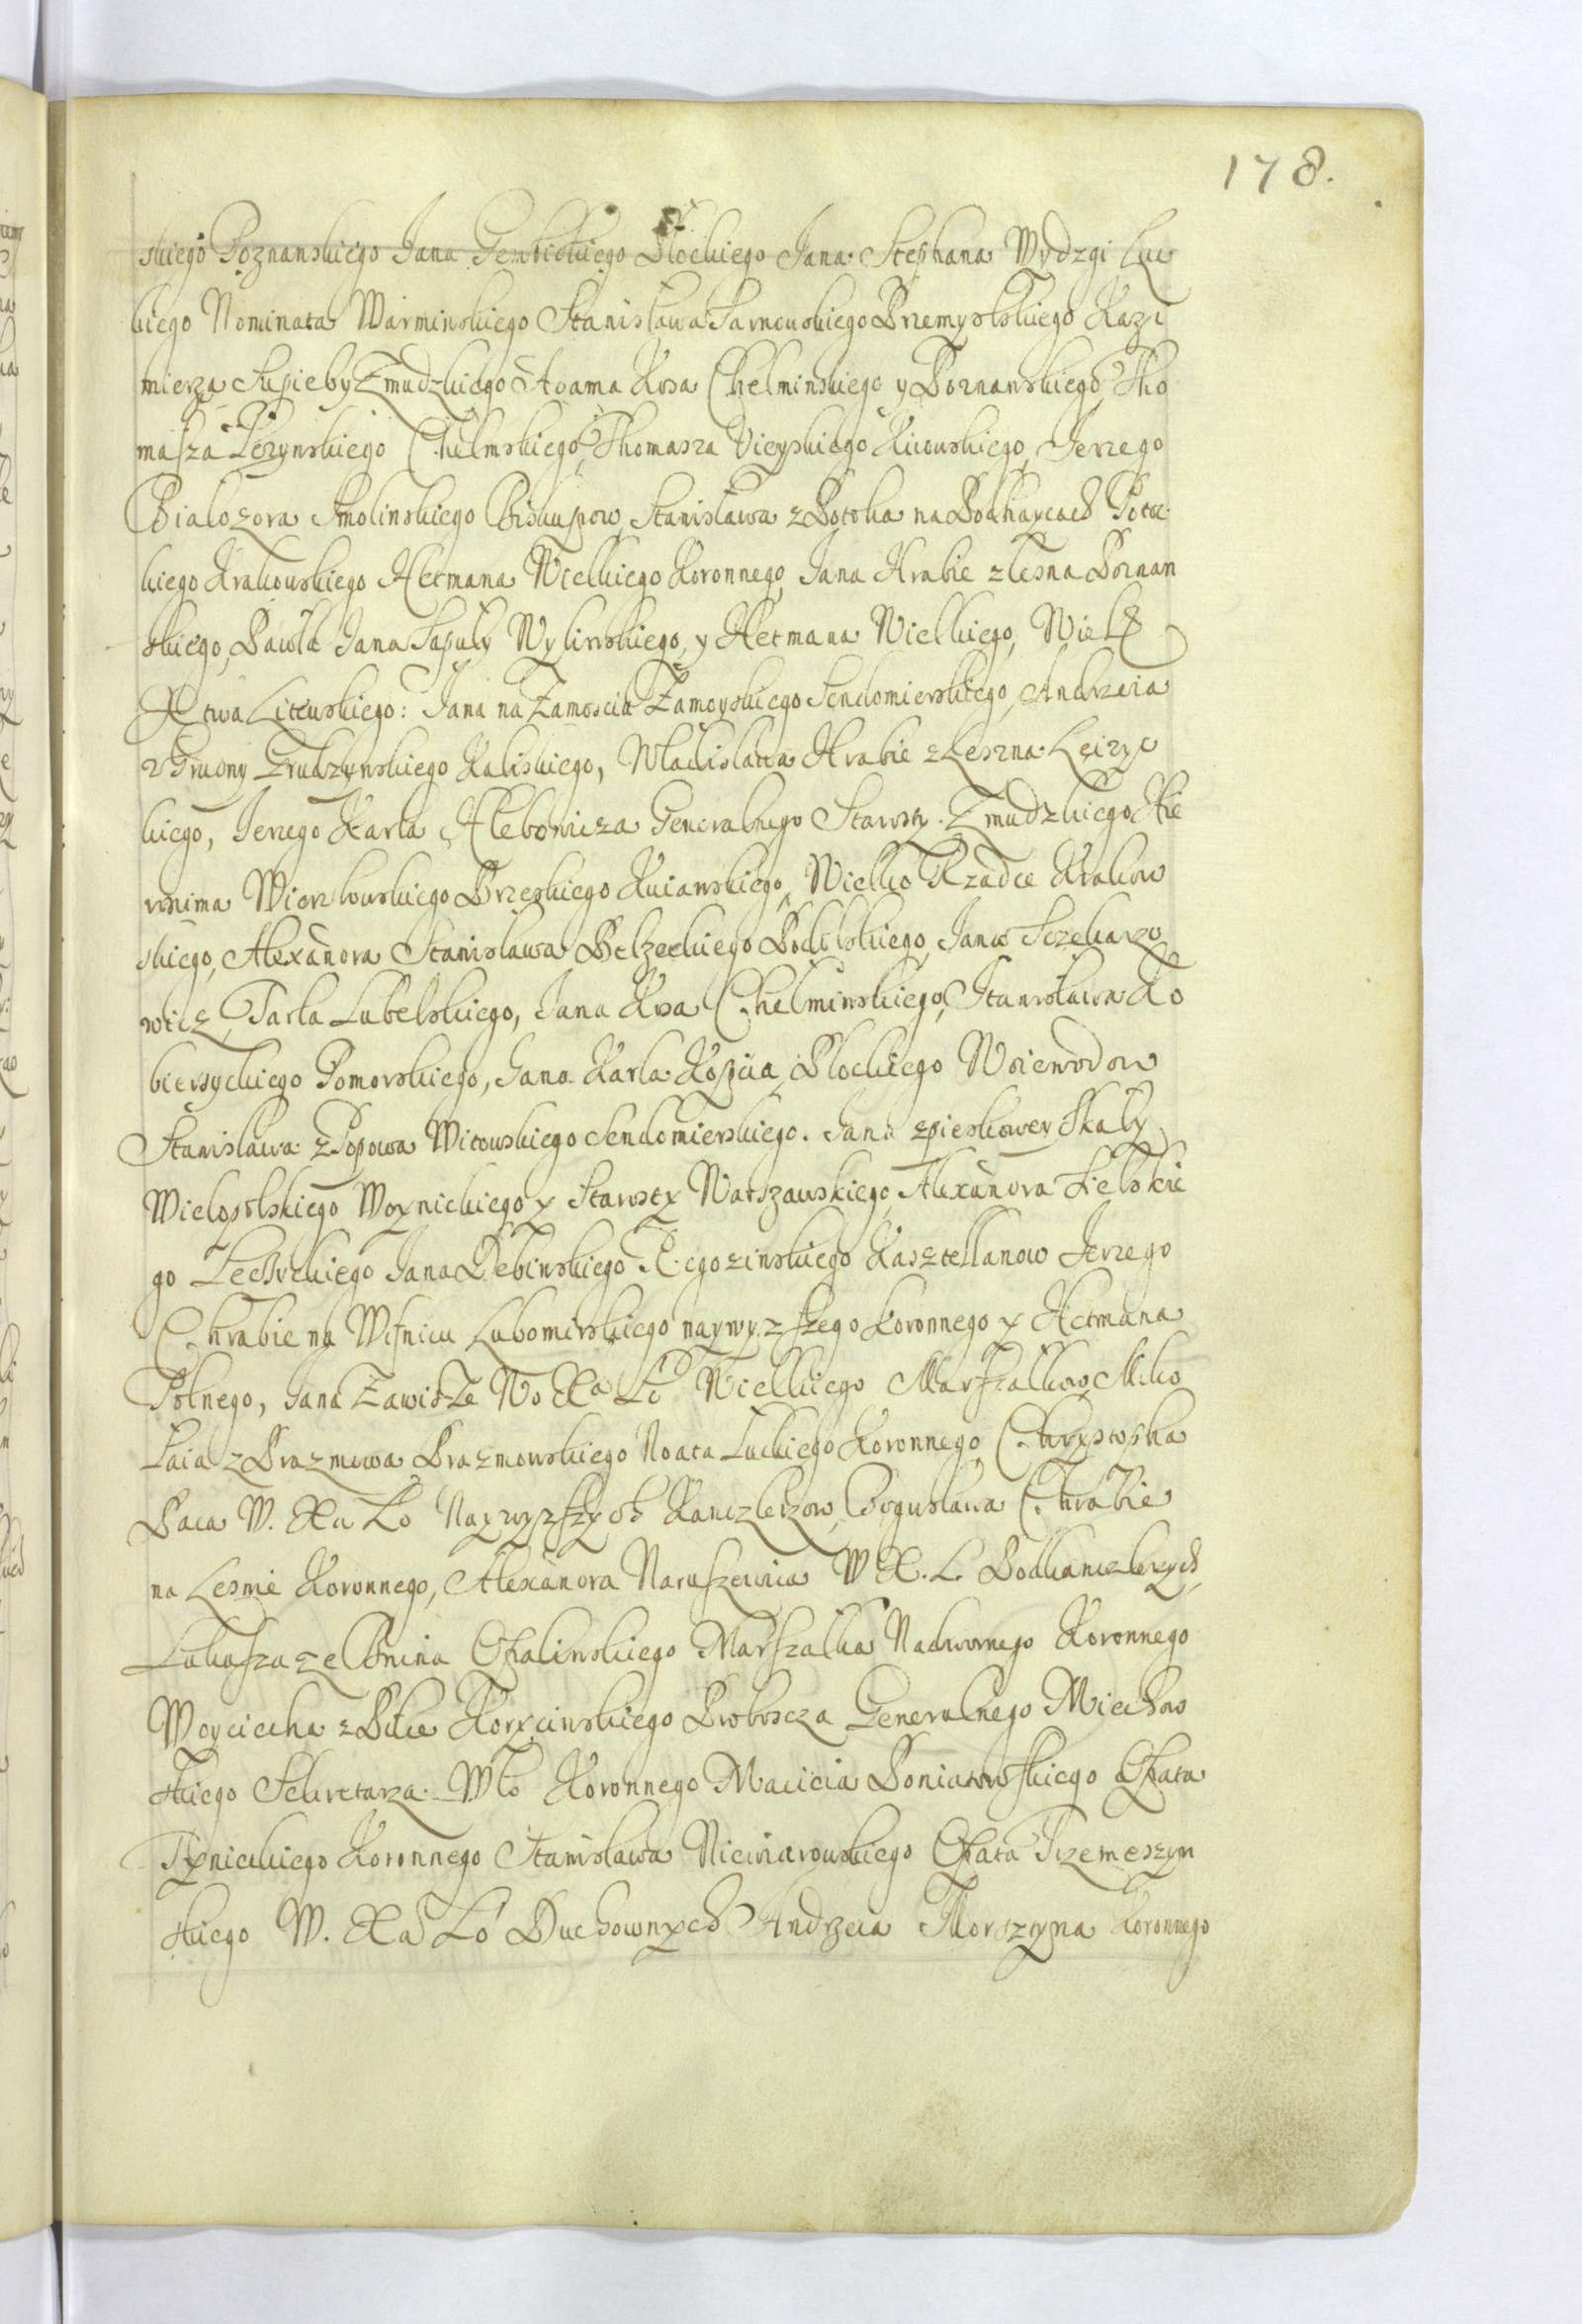 178.
skiego Poznanskiego Jana Gembickiego Płockiego Jana Stephana Wydzgi Łuc
kiego Nominata Warminskiego Stanisława Sarnowskiego Przemyslskiego Kazi
mierza Sapieby Zmudzkiego Adama Kosa Chelminskiego y Poznanskiego Tho
masza Lezynskiego Chelmskiego, Thomasza Vieyskiego Kiiowskiego, Jerzego
Bialozora Smolinskiego Biskupow, Stanisława z Potoka na Podhaycach Potoc
kiego Krakowskiego Hetmana Wielkiego Koronnego, Jana Hrabie z Lesna Poznan
skiego, Pawla Jana Sapihy Wylinskiego, y Hetmana Wielkiego, Wielg
X twa Litewskiego: Jana na Zamosciu Zamoyskiego Sendomierskiego, Andrzeia
z Grudny Grudzynskiego Kaliskiego, Wladislawa Hrabie z Leszna Lęczyc
kiego, Jerzego Karla Hlebowicza Generalnego Starosty Zmudzkiego Hie
ronima Wierzbowskiego Brzeskiego Kuiawskiego, Wielko Rządce Krakow
skiego, Alexandra Stanisława Belzeckiego Podolskiego, Jana Szczekarzo
wicz Tarla Lubelskiego, Jana Kosa Chelminskiego, Stanisława Ko
bierzyckiego Pomorskiego, Jana Karla Kopcia Płockiego Woiewodow
Stanisława z Popowa Witowskiego Sendomierskiego. Jana z pieskowey Skały
Wielopolskiego Woynickiego y Starosty Warszawskiego, Alexandra Sielskie
go Lędzkiego Jana Debinskiego Rogozinskiego Kasztellanow Jerzego
Chrabie na Wisniczu Lubomirskiego naywyzszego koronnego y Hetmana
Polnego, Jana Zawisze Wo Xa Lo Wielkiego Marszalkow, Miko
łaia z Prazmowa Prazmowskiego Noata Luckiego Koronnego, Chrystopha
Paca W. Xa Lo Naywyzszych Kanczlerzow, Bogusława Chrabie
na Lesnie Koronnego, Alexandra Naruszewica W X. L. Podkanczlerzych,
Lukasza ze Bnina Opalinskiego Marszalka Nadwornego Koronnego
Woyciecha z Pilce Koryciuskiego Proboscza Generalnego Miechow
skiego Sekretarza Wło Koronnego Macieia Poniatowskiego Opata
Tynieckiego Koronnego Stanisława Niewiarowskiego Opata Trzemeszyn
skiego W. Xa Lo Duchownych Andrzeia Morsztyna Koronnego